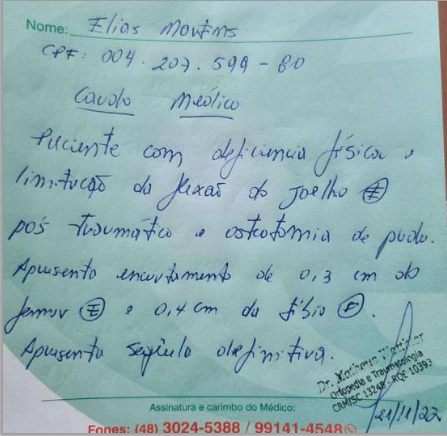 Nome: Elias Martins
CPF: 004.207.599-80
Laudo Médico
Paciente com deficiencia física e
limitação da flexão do joelho Ⓔ
pós traumático e osteotomia de
Apresenta encurtamento de 0,3 cm do
femur Ⓔ e 0,4 cm da tíbia Ⓔ.
Apresenta sequela definitiva.
Dr. Matheus
Ortopedia e Traumatologia
CRM/SC 13248 - RQE 10393
21/11/22
Assinatura e carimbo do Médico:
Fones: (48) 3024-5388 / 99141-4548